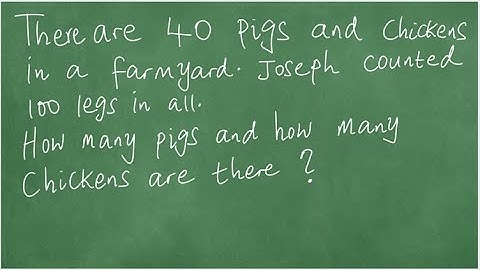 There are 40 pigs and chickens
in a farmyard. Joseph counted
100 legs in all.
How many pigs and how many
Chickens are there ?